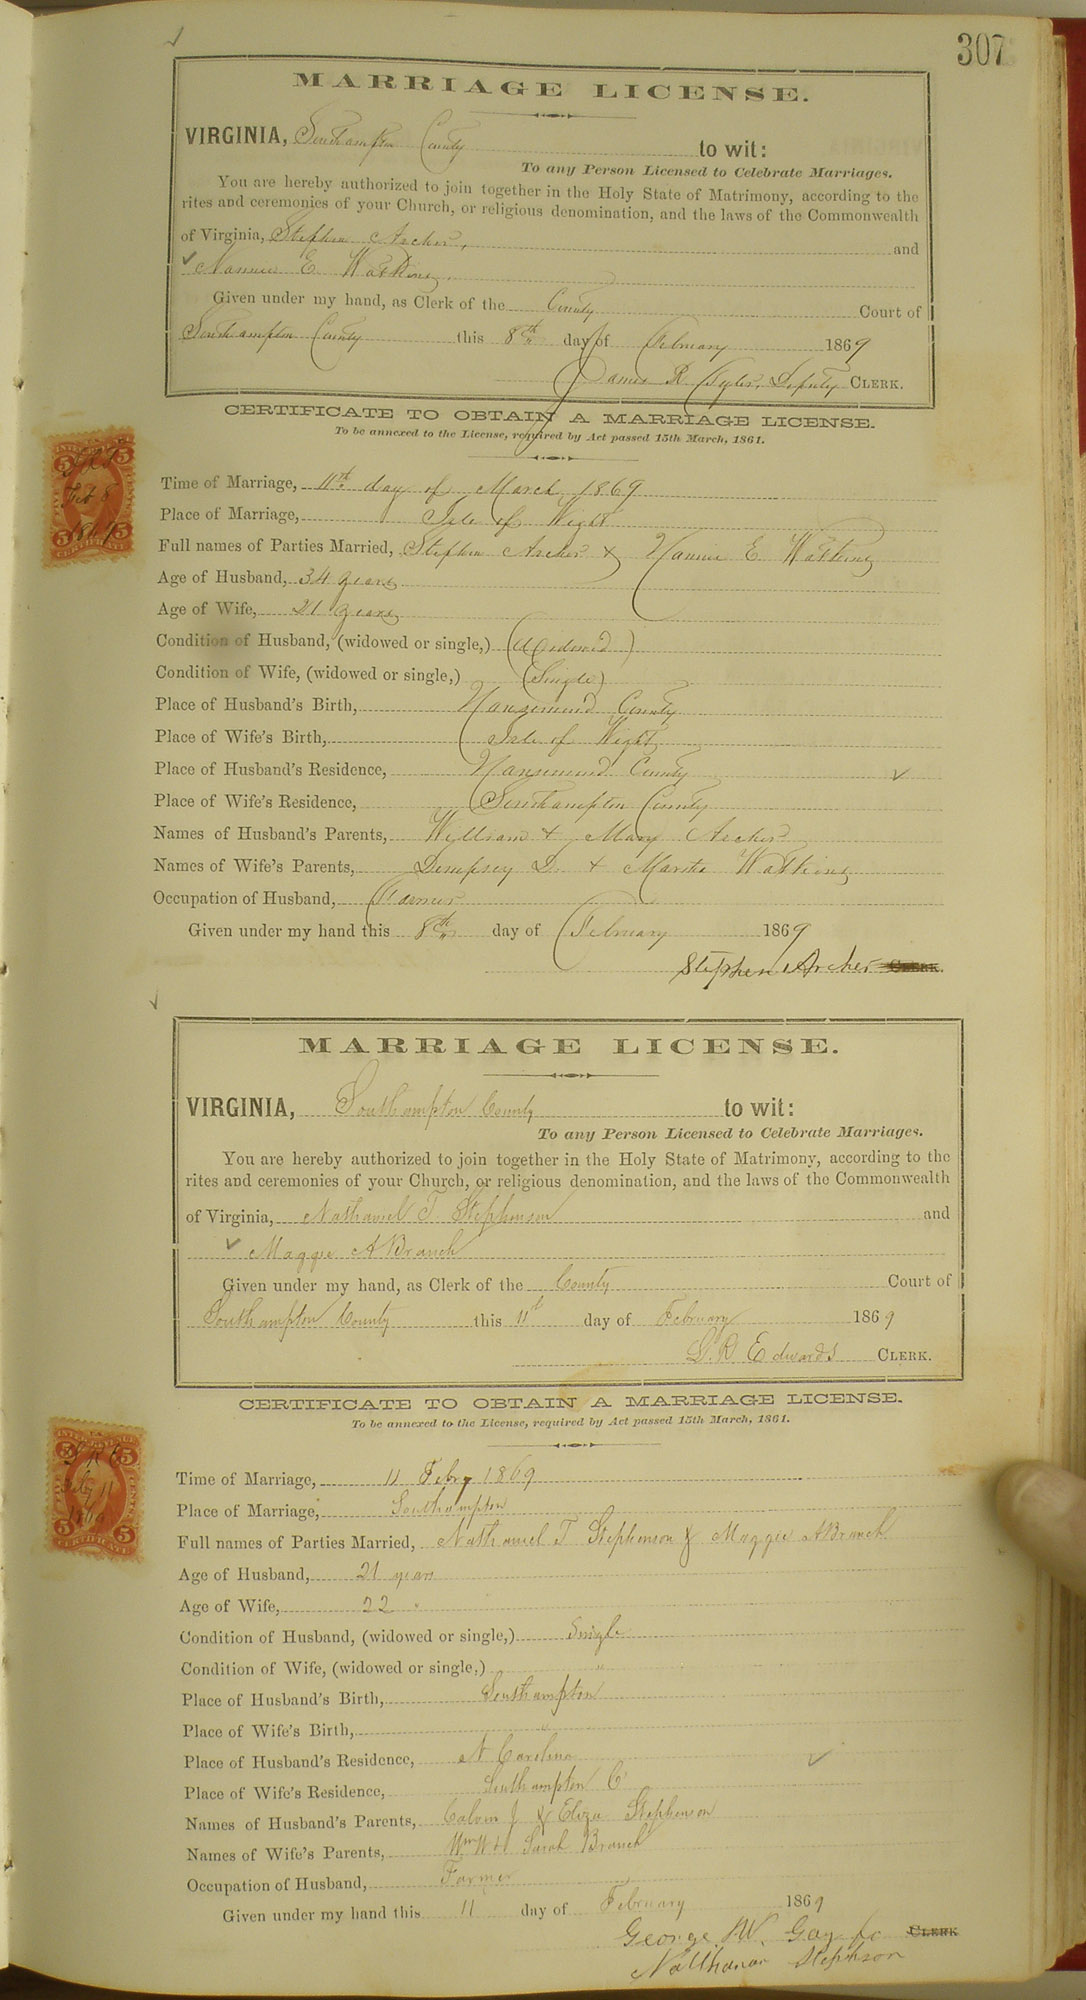 307
MARRIAGE LICENSE.
VIRGINIA, Southampton County to wit:
To any Person Licensed to Celebrate Marriages.
You are hereby authorized to join together in the Holy State of Matrimony, according to the
rites and ceremonies of your Church, or religious denomination, and the laws of the Commonwealth
of Virginia, Stephen Archer, and
Nannie E Watkins.
Given under my hand, as Clerk of the County Court of
Southampton County this 8th day of February 1869
James R Tyler, Deputy CLERK.
CERTIFICATE TO OBTAIN A MARRIAGE LICENSE.
To be annexed to the License, required by Act passed 15th March, 1861.
Feb 8
Time of Marriage, 11th day of March 1869
Place of Marriage, Isle of Wight
Full names of Parties Married, Stephen Archer & Nannie E Watkins
Age of Husband, 34 years
Age of Wife, 21 years
Condition of Husband, (widowed or single,) (Widowed)
Condition of Wife, (widowed or single,) (Single)
Place of Husband's Birth, Nansemond County
Place of Wife's Birth, Isle of Wight
Place of Husband's Residence, Nansemond County
Place of Wife's Residence, Southampton County
Names of Husband's Parents, William & Mary Archer
Names of Wife's Parents, Dempsey D. & Martha Watkins
Occupation of Husband, Farmer
Given under my hand this 8th day of February 1869
Stephen Archer CLERK.
MARRIAGE LICENSE.
VIRGINIA, Southampton County to wit:
To any Person Licensed to Celebrate Marriages.
You are hereby authorized to join together in the Holy State of Matrimony, according to the
rites and ceremonies of your Church, or religious denomination, and the laws of the Commonwealth
of Virginia, Nathaniel T Stephenson and
Maggie A Branch
Given under my hand, as Clerk of the County Court of
Southampton County this 11th day of February 1869
L. R Edwards CLERK.
CERTIFICATE TO OBTAIN A MARRIAGE LICENSE.
To be annexed to the License, required by Act passed 15th March, 1861.
Time of Marriage, 11 Febry 1869
Place of Marriage, Southampton
Full names of Parties Married, Nathaniel T Stephenson & Maggie A Branch
Age of Husband, 21 years
Age of Wife, 22 "
Condition of Husband, (widowed or single,) Single
Condition of Wife, (widowed or single,) "
Place of Husband's Birth, Southampton
Place of Wife's Birth, "
Place of Husband's Residence, N Carolina
Place of Wife's Residence, Southampton C
Names of Husband's Parents, Calvin J & Eliza Stephenson
Names of Wife's Parents, Wm W & Sarah Branch
Occupation of Husband, Farmer
Given under my hand this 11 day of February 1869
George W. Gay for CLERK
Nathanan Stephson